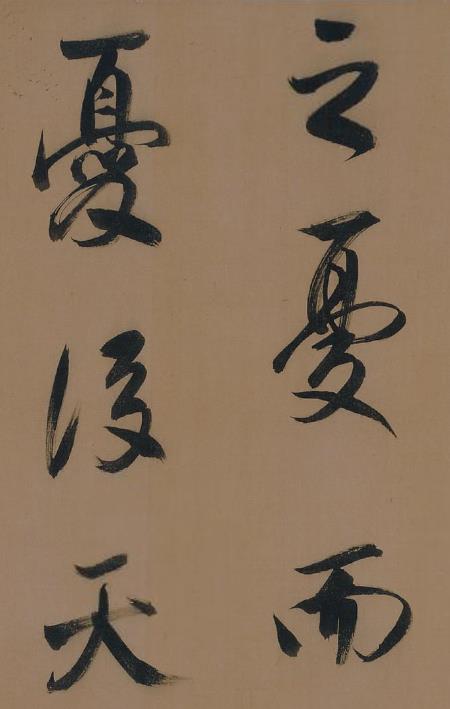 之憂而
憂後天